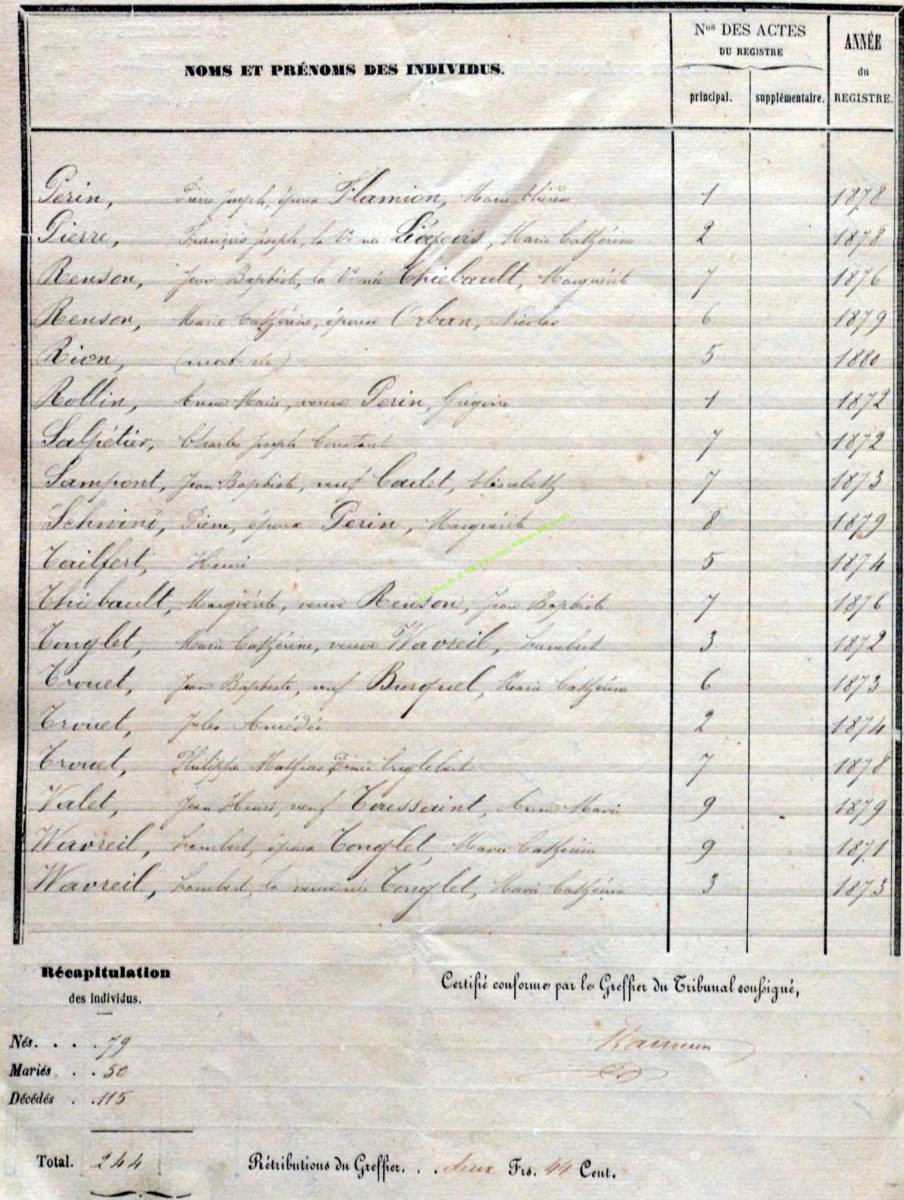 NOMS ET PRÉNOMS DES INDIVIDUS.
Nos DES ACTES
DU REGISTRE
principal.
supplémentaire.
ANNÉE
du
REGISTRE.
Perin, Pierre Joseph, époux Flamion, Marie Thérèse 1 1878
Pierre, François Joseph, la Ve née Liégeois, Marie Cathérine 2 1878
Renson, Jean Baptiste, la Ve née Thiebault, Marguérite 7 1876
Renson, Marie Cathérine, épouse Orban, Nicolas 6 1879
Rion, (mort-né) 5 1880
Rollin, Anne Marie, veuve Perin, Grégoire 1 1872
Salpétier, Charles Joseph Constant 7 1872
Sampont, Jean Baptiste, veuf Cadet, Elisabeth 7 1873
Pierre, époux Perin, Marguérite 8 1879
Tailfert, Henri 5 1874
Thiebault, Marguérite, veuve Renson, Jean Baptiste 7 1876
Tonglet, Marie Cathérine, veuve Wavreil, Lambert 3 1872
Trouet, Jean Baptiste, veuf Burquel, Marie Cathérine 6 1873
Trouet, Jules Amédée 2 1874
Trouet, Philippe Mathias Englebert 7 1878
Valet, Jean Henri, veuf Toussaint, Anne Marie 9 1879
Wavreil, Lambert, époux Tonglet, Marie Cathérine 9 1871
Wavreil, Lambert, la veuve née Tonglet, Marie Cathérine 3 1873
Récapitulation
des individus.
Nés. . . . . 79
Mariés . . . 50
Décédés . . . 115
Total. 244
Certifié conforme par le Greffier du Tribunal soussigné,
Rétributions du Greffier. . . deux Frs. 44 Cent.